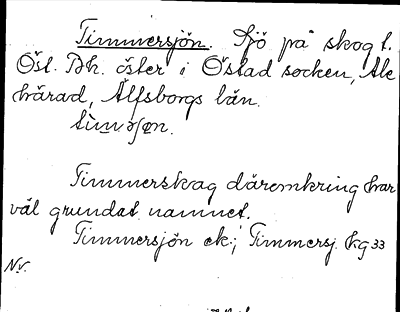 Timmersjön. Sjö på skog t.
Öst. Bh. öster i Östad socken, Ale
härad, Älfsborgs län.
Timmerskog däromkring har
väl grundat namnet.
Timmersjön ek; Timmersj. hg 33